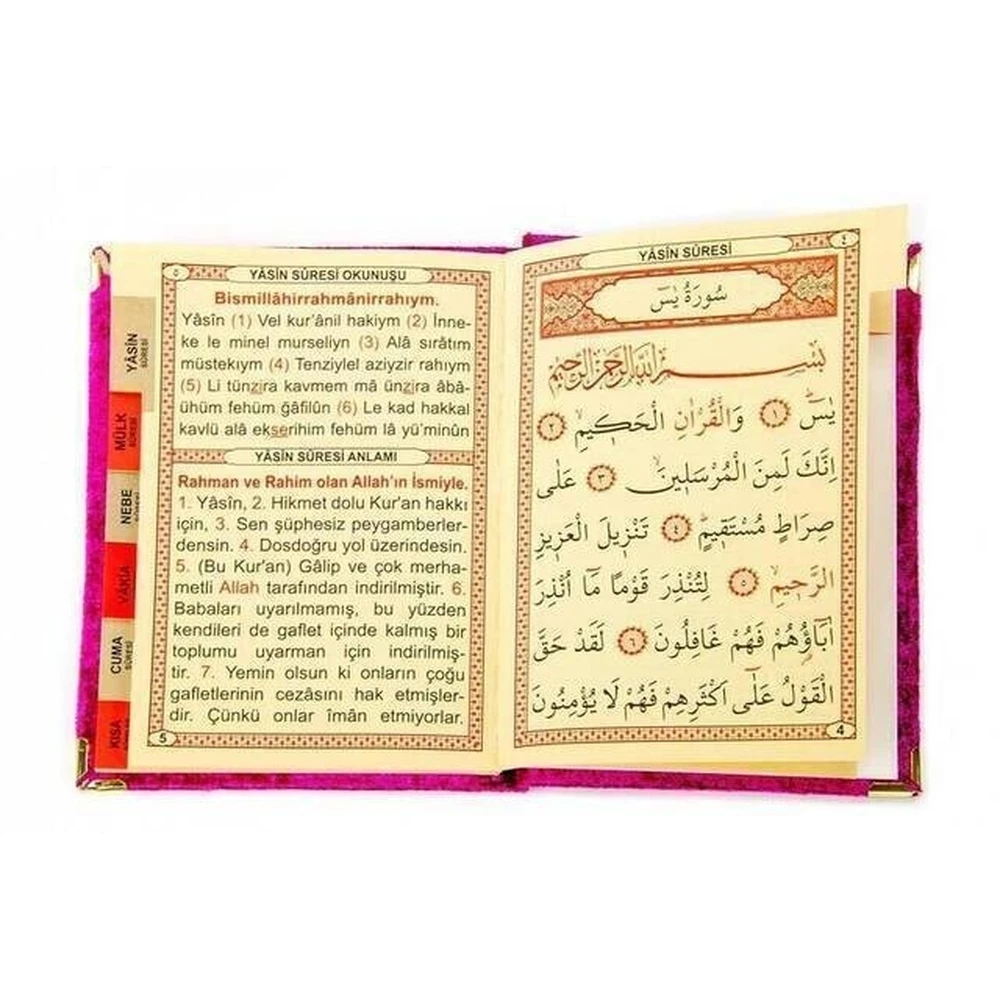 YÂSİN SÛRESİ
٤
سُورَةُ يٰسٓ
بِسْمِ اللّٰهِ الرَّحْمٰنِ الرَّحِيمِ
يٰسٓ ﴿١﴾ وَالْقُرْاٰنِ الْحَكٖيمِۙ ﴿٢﴾
اِنَّكَ لَمِنَ الْمُرْسَلٖينَۙ ﴿٣﴾ عَلٰى
صِرَاطٍ مُسْتَقٖيمٍؕ ﴿٤﴾ تَنْزٖيلَ الْعَزٖيزِ
الرَّحٖيمِۙ ﴿٥﴾ لِتُنْذِرَ قَوْمًا مَٓا اُنْذِرَ
اٰبَٓاؤُ۬هُمْ فَهُمْ غَافِلُونَ ﴿٦﴾ لَقَدْ حَقَّ
الْقَوْلُ عَلٰٓى اَكْثَرِهِمْ فَهُمْ لَا يُؤْمِنُونَ
4
٥
YÂSİN SÛRESİ OKUNUŞU
Bismillâhirrahmânirrahıym.
Yâsîn (1) Vel kur’ânil hakiym (2) İnne-
ke le minel murseliyn (3) Alâ sırâtım
müstekıym (4) Tenziylel aziyzir rahıym
(5) Li tünzira kavmem mâ ünzira âbâ-
ühüm fehüm ğâfilûn (6) Le kad hakkal
kavlü alâ ekserihim fehüm lâ yü’minûn
YÂSİN SÛRESİ ANLAMI
Rahman ve Rahim olan Allah’ın İsmiyle.
1. Yâsîn, 2. Hikmet dolu Kur'an hakkı
için, 3. Sen şüphesiz peygamberler-
densin. 4. Dosdoğru yol üzerindesin.
5. (Bu Kur'an) Gâlip ve çok merha-
metli Allah tarafından indirilmiştir. 6.
Babaları uyarılmamış, bu yüzden
kendileri de gaflet içinde kalmış bir
toplumu uyarman için indirilmiş-
tir. 7. Yemin olsun ki onların çoğu
gafletlerinin cezâsını hak etmişler-
dir. Çünkü onlar îmân etmiyorlar.
5
YÂSİN
SÛRESİ
MÜLK
SÛRESİ
NEBE
SÛRESİ
VÂKIA
CUMA
SÛRESİ
KISA